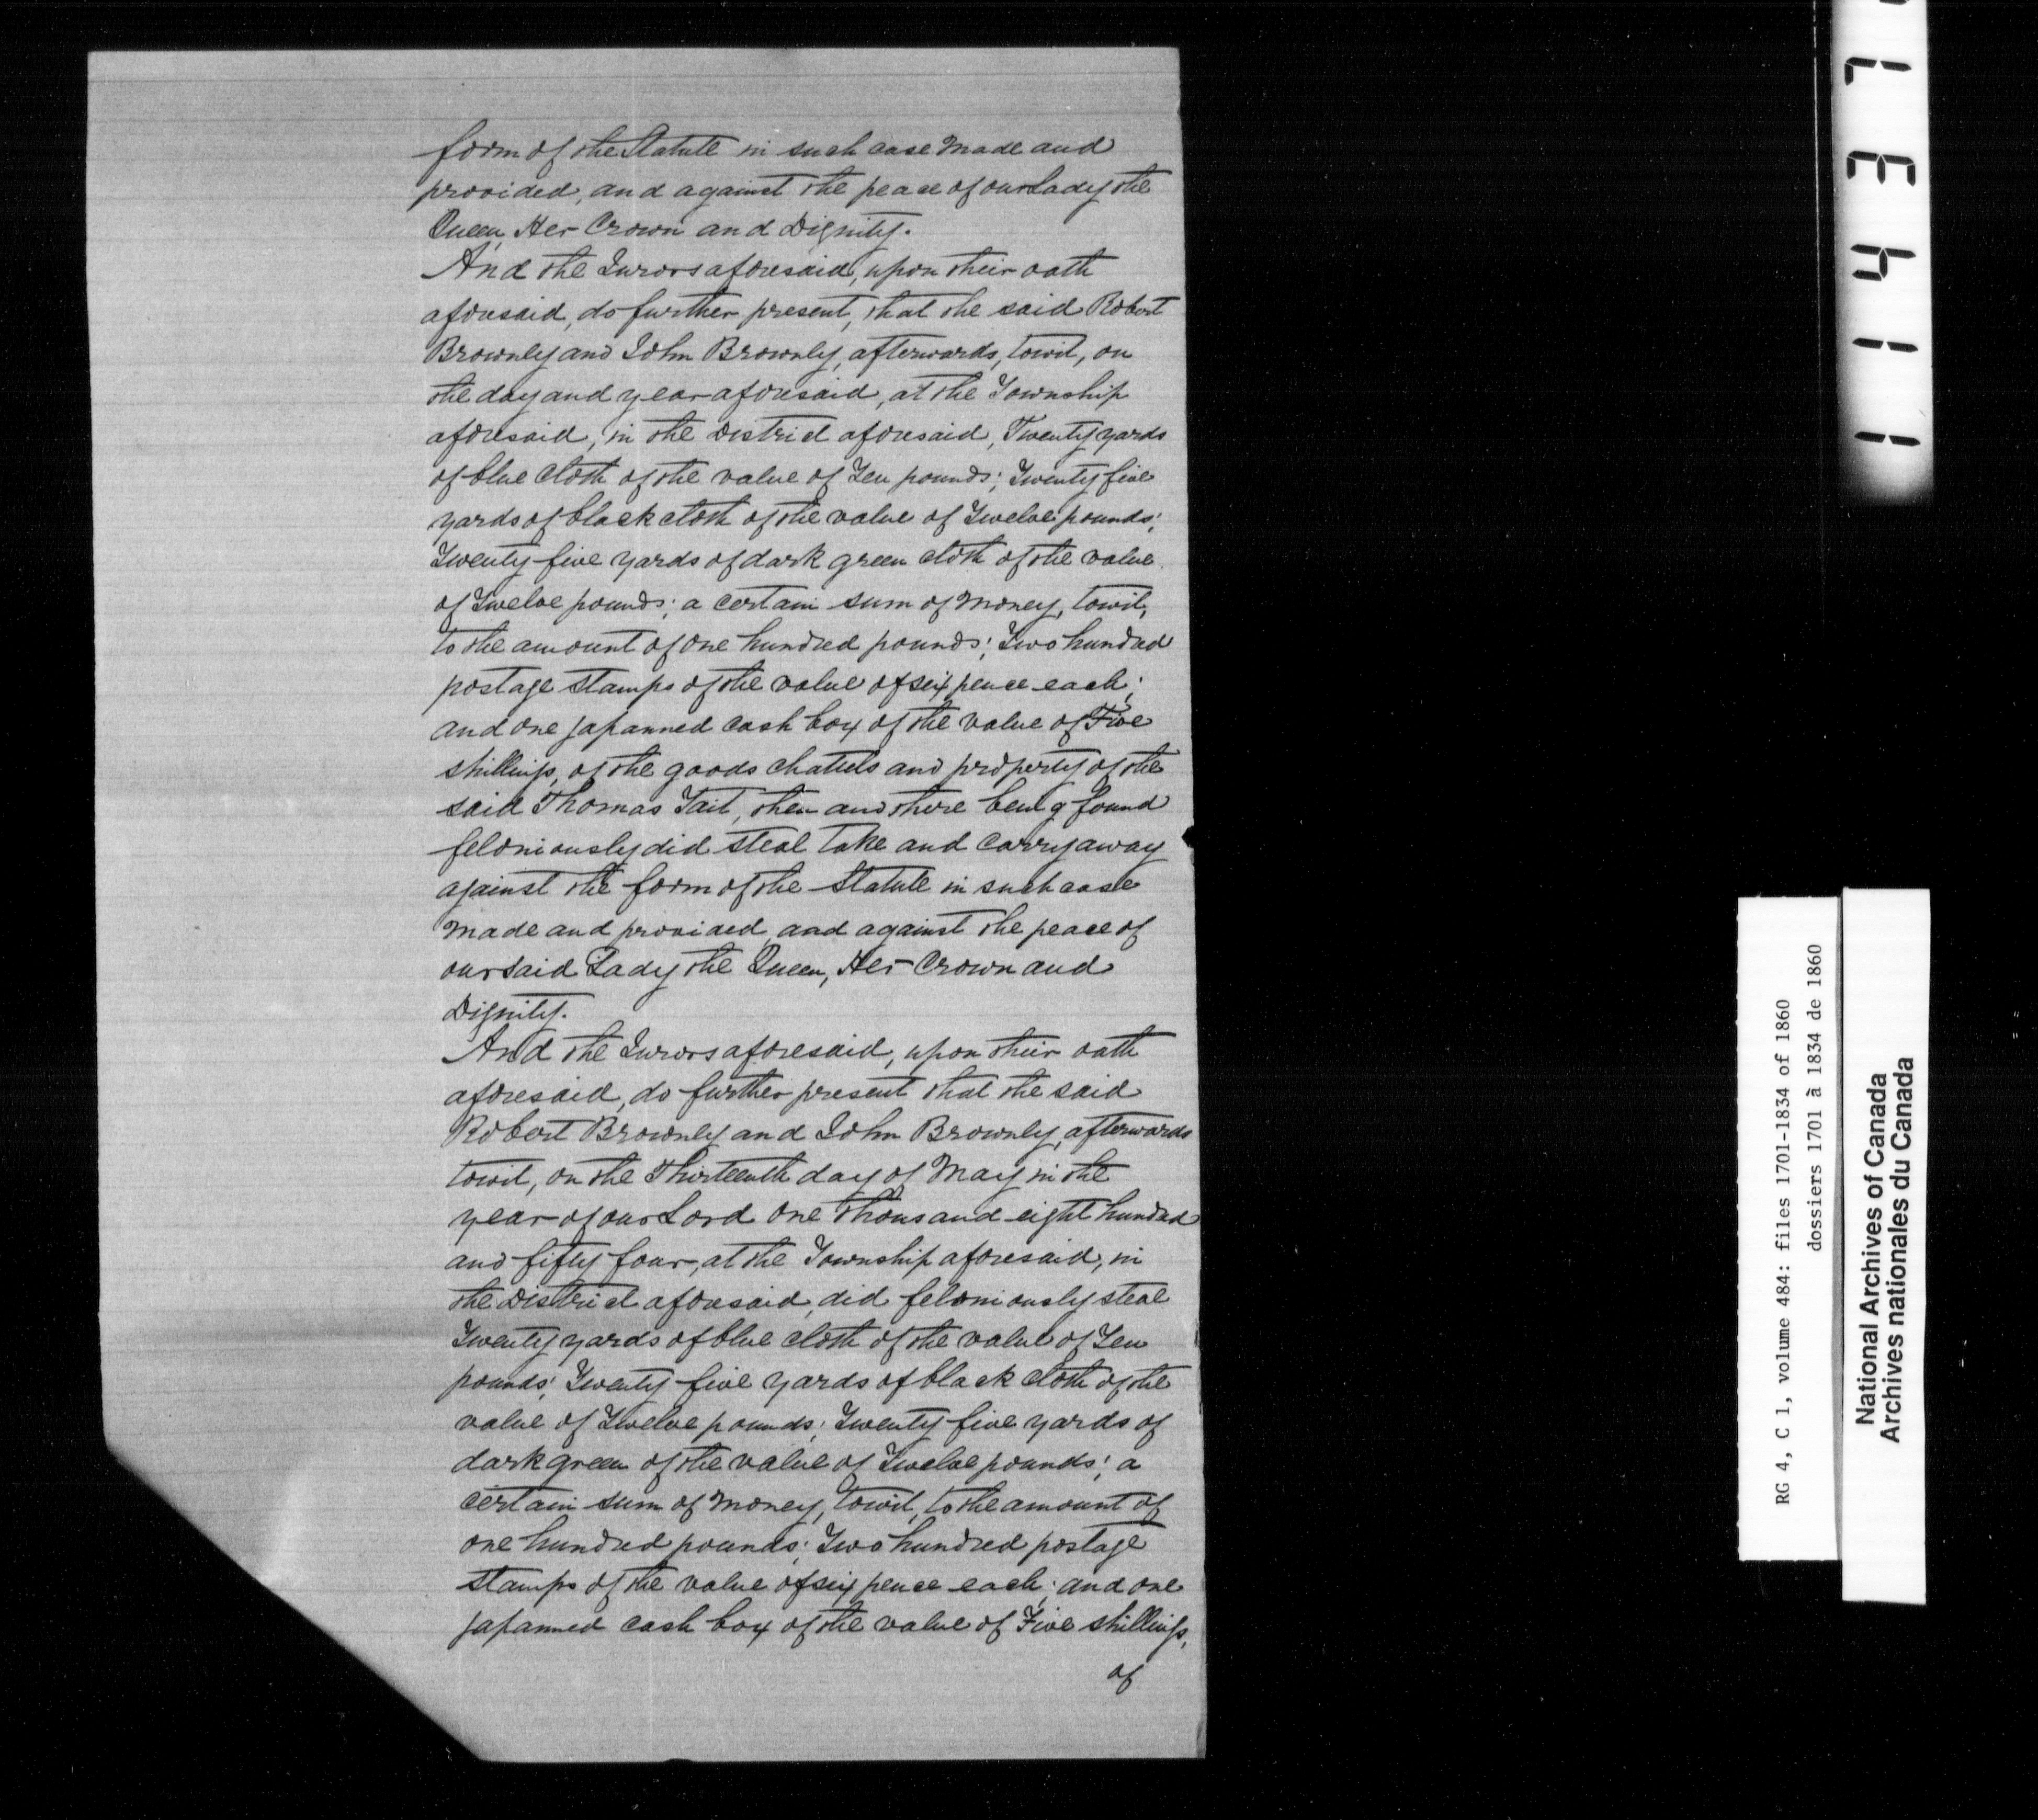 form of the Statute in such case made and
provided, and against the peace of our Lady the
Queen, Her Crown and Dignity.
And the Jurors aforesaid, upon their oath
aforesaid, do further present, that the said Robert
Brownly and John Brownly, afterwards, towit, on
the day and year aforesaid, at the Township
aforesaid, in the District aforesaid, Twenty yards
of blue cloth of the value of Ten pounds; Twenty five
yards of black cloth of the value of Twelve pounds;
Twenty five yards of dark green cloth of the value
of Twelve pounds; a certain sum of money, towit,
to the amount of one hundred pounds; Two hundred
postage stamps of the value of six pence each;
and one japanned cash box of the value of Five
shillings, of the goods chattels and property of the
said Thomas Tait, then and there being found
feloniously did steal take and carry away
against the form of the Statute in such case
made and provided, and against the peace of
our said Lady the Queen, Her Crown and
Dignity.
And the Jurors aforesaid, upon their oath
aforesaid, do further present that the said
Robert Brownly and John Brownly, afterwards
towit, on the Thirteenth day of May in the
year of our Lord one thousand eight hundred
and fifty four, at the Township aforesaid, in
the District aforesaid, did feloniously steal
Twenty yards of blue cloth of the value of Ten
pounds; Twenty five yards of black cloth of the
value of Twelve pounds; Twenty five yards of
dark green of the value of Twelve pounds; a
certain sum of money, towit, to the amount of
one hundred pounds; Two hundred postage
stamps of the value of six pence each; and one
japanned cash box of the value of Five shillings,
of
111437
RG 4, C 1, volume 484: files 1701-1834 of 1860
dossiers 1701 à 1834 de 1860
National Archives of Canada
Archives nationales du Canada